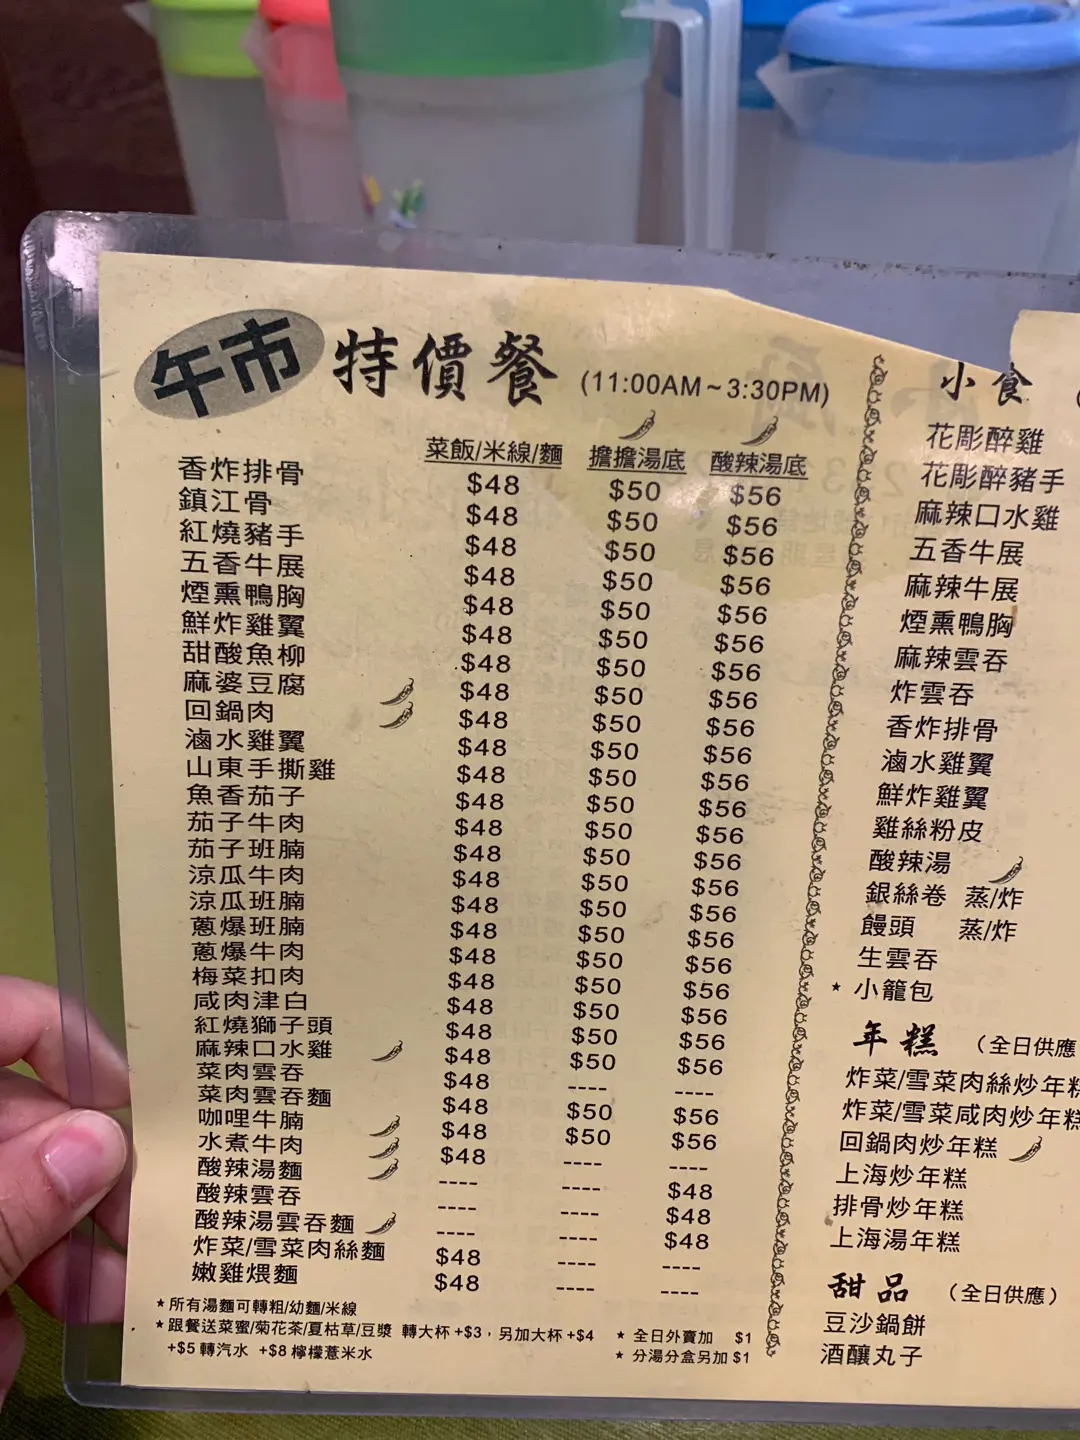 午市 特價餐 (11:00AM~3:30PM)
菜飯/米線/麵 擔擔湯底 酸辣湯底
香炸排骨 $48 $50 $56
鎮江骨 $48 $50 $56
紅燒豬手 $48 $50 $56
五香牛展 $48 $50 $56
煙熏鴨胸 $48 $50 $56
鮮炸雞翼 $48 $50 $56
甜酸魚柳 $48 $50 $56
麻婆豆腐 $48 $50 $56
回鍋肉 $48 $50 $56
滷水雞翼 $48 $50 $56
山東手撕雞 $48 $50 $56
魚香茄子 $48 $50 $56
茄子牛肉 $48 $50 $56
茄子班腩 $48 $50 $56
涼瓜牛肉 $48 $50 $56
涼瓜班腩 $48 $50 $56
蔥爆班腩 $48 $50 $56
蔥爆牛肉 $48 $50 $56
梅菜扣肉 $48 $50 $56
咸肉津白 $48 $50 $56
紅燒獅子頭 $48 $50 $56
麻辣口水雞 $48 $50 $56
菜肉雲吞 $48 ---- ----
菜肉雲吞麵 $48 $50 $56
咖哩牛腩 $48 $50 $56
水煮牛肉 $48 ---- ----
酸辣湯麵 ---- ---- $48
酸辣雲吞 ---- ---- $48
酸辣湯雲吞麵 ---- ---- $48
炸菜/雪菜肉絲麵 $48 ---- ----
嫩雞煨麵 $48 ---- ----
★所有湯麵可轉粗/幼麵/米線
★跟餐送菜蜜/菊花茶/夏枯草/豆漿 轉大杯+$3，另加大杯+$4
+$5轉汽水 +$8檸檬薏米水
★ 全日外賣加 $1
★ 分湯分盒另加$1
小食
花彫醉雞
花彫醉豬手
麻辣口水雞
五香牛展
麻辣牛展
煙熏鴨胸
麻辣雲吞
炸雲吞
香炸排骨
滷水雞翼
鮮炸雞翼
雞絲粉皮
酸辣湯
銀絲卷 蒸/炸
饅頭 蒸/炸
生雲吞
★ 小籠包
年糕 (全日供應
炸菜/雪菜肉絲炒年糕
炸菜/雪菜咸肉炒年糕
回鍋肉炒年糕
上海炒年糕
排骨炒年糕
上海湯年糕
甜品 (全日供應)
豆沙鍋餅
酒釀丸子